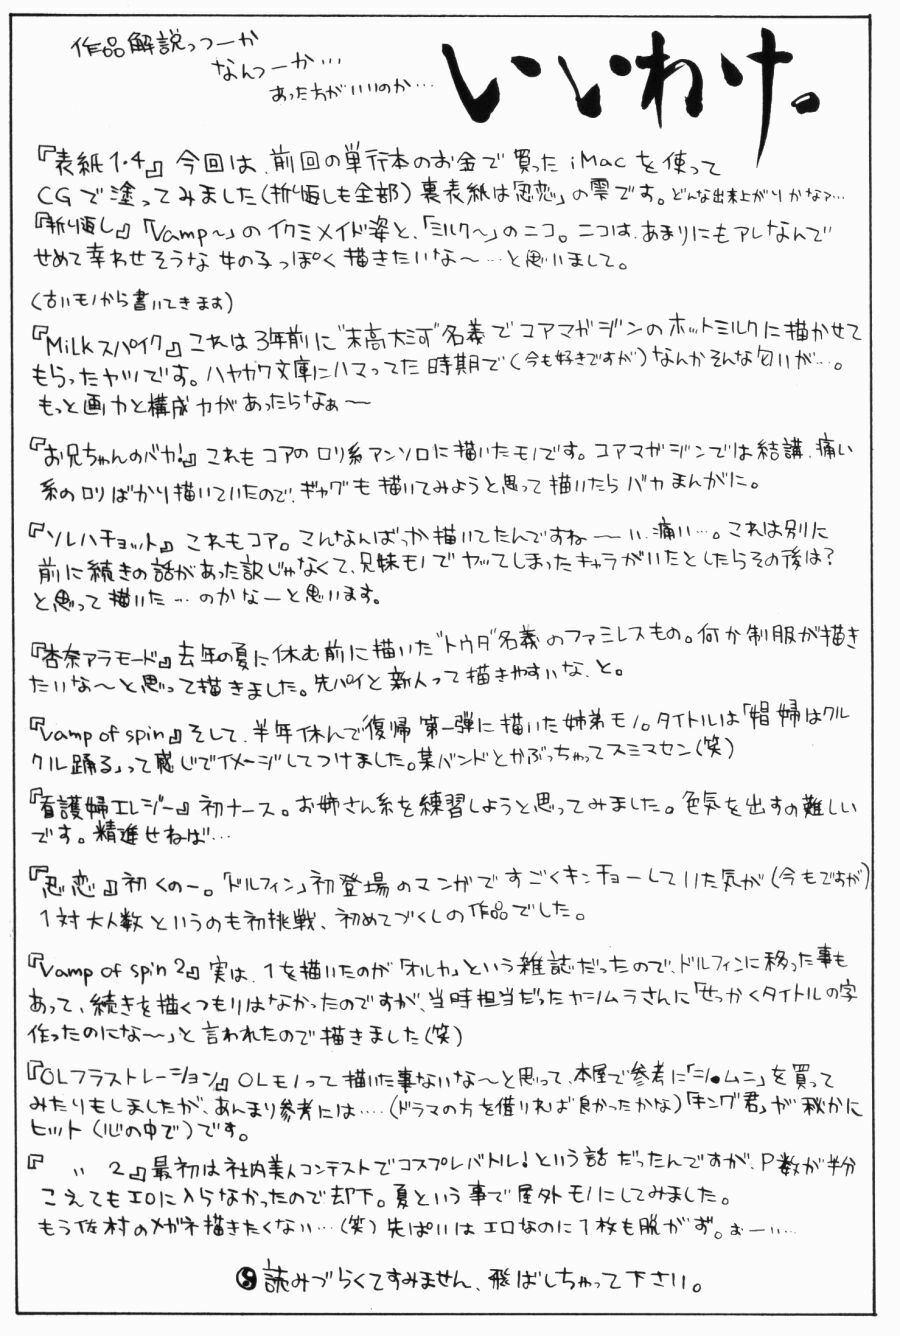 作品解説っつーか
なんつーか…
あった方がいいのか…
いいわけ。
『表紙1・4』今回は、前回の単行本のお金で買ったiMacを使って
CGで塗ってみました(折り返しも全部)裏表紙は「忍恋」の雫です。どんな出来上がりかなァ…
『折り返し』「Vamp〜」のイクミメイド姿と、「ミルク〜」のニコ。ニコは、あまりにもアレなんで
せめて幸わせそうな女の子っぽく描きたいな〜…と思いまして。
(古いモノから書いてきます)
『Milkスパイク』これは3年前に"末高大河"名義でコアマガジンのホットミルクに描かせて
もらったヤツです。ハヤカワ文庫にハマってた時期で(今も好きですが)なんかそんな匂いが…。
もっと画力と構成力があったらなぁ〜
『お兄ちゃんのバカ!』これもコアのロリ系アンソロに描いたモノです。コアマガジンでは結講、痛い
系のロリばかり描いていたので、ギャグも描いてみようと思って描いたらバカまんがに。
『ソルハチョット』これもコア。こんなんばっか描いてたんですね〜い、痛い…。これは別に
前に続きの話があった訳じゃなくて、兄妹モノでヤッてしまったキャラがいたとしたらその後は?
と思って描いた…のかなーと思います。
『杏奈アラモード』去年の夏に休む前に描いた"トウタ"名義のファミレスもの。何か制服が描き
たいな〜と思って描きました。先パイと新人って描きやすいな、と。
『Vamp of spin』そして、半年休んで復帰第一弾に描いた姉弟モノ。タイトルは「娼婦はクル
クル踊る」って感じでイメージしてつけました。某バンドとかぶっちゃってスミマセン(笑)
『看護婦エレジー』初ナース。お姉さん系を練習しようと思ってみました。色気を出すの難しい
です。精進せねば…
『忍恋』初くのー。「ドルフィン」初登場のマンガですごくキンチョーしていた気が(今もですが)
1対大人数というのも初挑戦、初めてづくしの作品でした。
『Vamp of spin 2』実は、1を描いたのが「オルカ」という雑誌だったので、ドルフィンに移った事も
あって、続きを描くつもりはなかったのですが、当時担当だったヤシムラさんに「せっかくタイトルの字
作ったのにな〜」と言われたので描きました(笑)
『OLフラストレーション』OLモノって描いた事ないな〜と思って、本屋で参考に「ショムニ」を買って
みたりもしましたが、あんまり参考には…(ドラマの方を借りれば良かったかな)「キング君」が秘かに
ヒット(心の中で)です。
『 〃 2』最初は社内美人コンテストでコスプレバトル!という話だったんですが、P数が半分
こえてもエロに入らなかったので却下。夏という事で屋外モノにしてみました。
もう佐村のメガネ描きたくない…(笑)先ぱいはエロなのに1枚も脱がず。ぉーぃ…
読みづらくてすみません、飛ばしちゃって下さい。